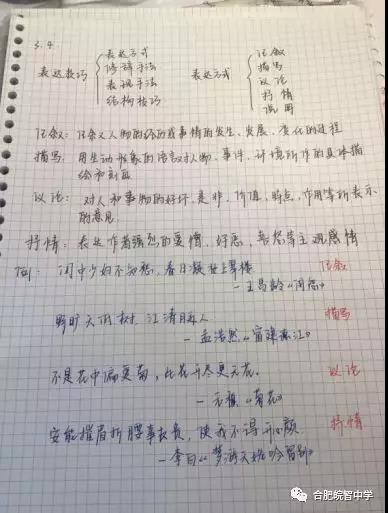 3.4
表达技巧 { 表达方式 修辞手法 表现手法 结构技巧
表达方式 { 记叙 描写 议论 抒情 说明
记叙: 记叙人物的经历或事情的发生、发展、变化的过程
描写: 用生动形象的语言对人物、事件、环境所作的具体描
绘和刻画
议论: 对人和事物的好坏、是非、价值、特点、作用等所表示
的意见
抒情: 表达作者强烈的爱憎、好恶、喜怒等主观感情
例: 闺中少妇不知愁,春日凝妆上翠楼 记叙
—王昌龄《闺怨》
野旷天低树,江清月近人 描写
—孟浩然《宿建德江》
不是花中偏爱菊,此花开尽更无花 议论
—元稹《菊花》
安能摧眉折腰事权贵,使我不得开心颜 抒情
—李白《梦游天姥吟留别》
合肥皖智中学